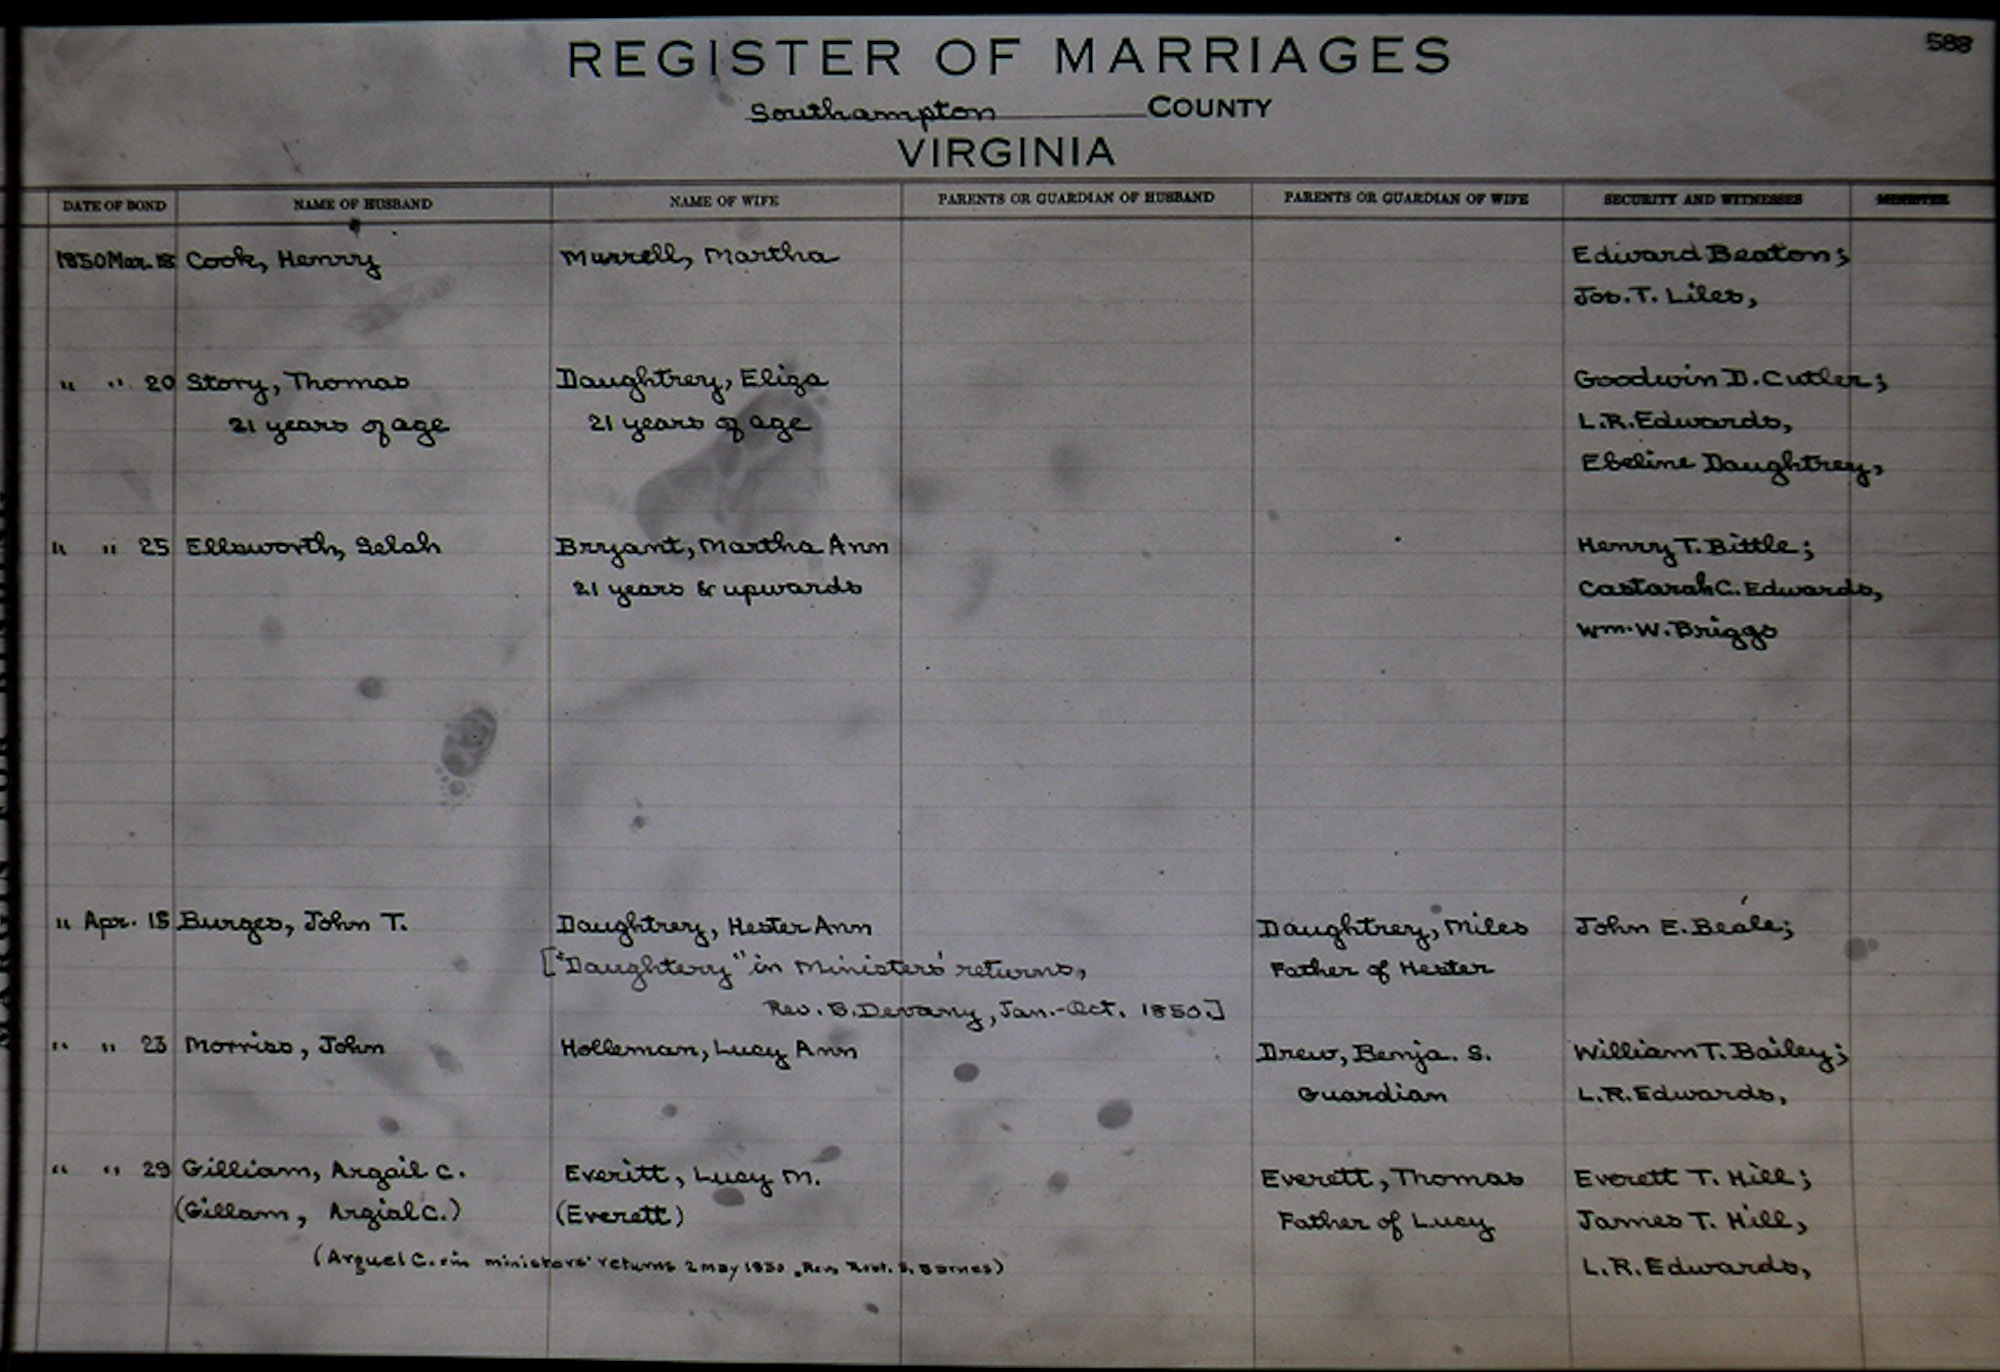 588
REGISTER OF MARRIAGES
Southampton COUNTY
VIRGINIA
DATE OF BOND NAME OF HUSBAND NAME OF WIFE PARENTS OR GUARDIAN OF HUSBAND PARENTS OR GUARDIAN OF WIFE SECURITY AND WITNESSES MINISTER
1850 Mar. 18 Cook, Henry Murrell, Martha Edward Beaton;
Jos. T. Liles,
" " 20 Story, Thomas Daughtrey, Eliza Goodwin D. Cutler;
21 years of age 21 years of age L.R. Edwards,
Ebeline Daughtrey,
" " 25 Ellsworth, Selah Bryant, Martha Ann Henry T. Bittle;
21 years & upwards Castarah C. Edwards,
Wm. W. Briggs
" Apr. 15 Burges, John T. Daughtrey, Hester Ann Daughtrey, Miles John E. Beale;
["Daughtery" in Ministers' returns, Father of Hester
Rev. B. Devany, Jan.-Oct. 1850.]
" " 23 Morriss, John Holleman, Lucy Ann Drew, Benja. S. William T. Bailey;
Guardian L.R. Edwards,
" " 29 Gilliam, Argail C. Everitt, Lucy M. Everett, Thomas Everett T. Hill;
(Gillam, Argial C.) (Everett) Father of Lucy James T. Hill,
(Arguel C. in ministers' returns 2 May 1850, Rev. Robt. S. Barnes) L.R. Edwards,